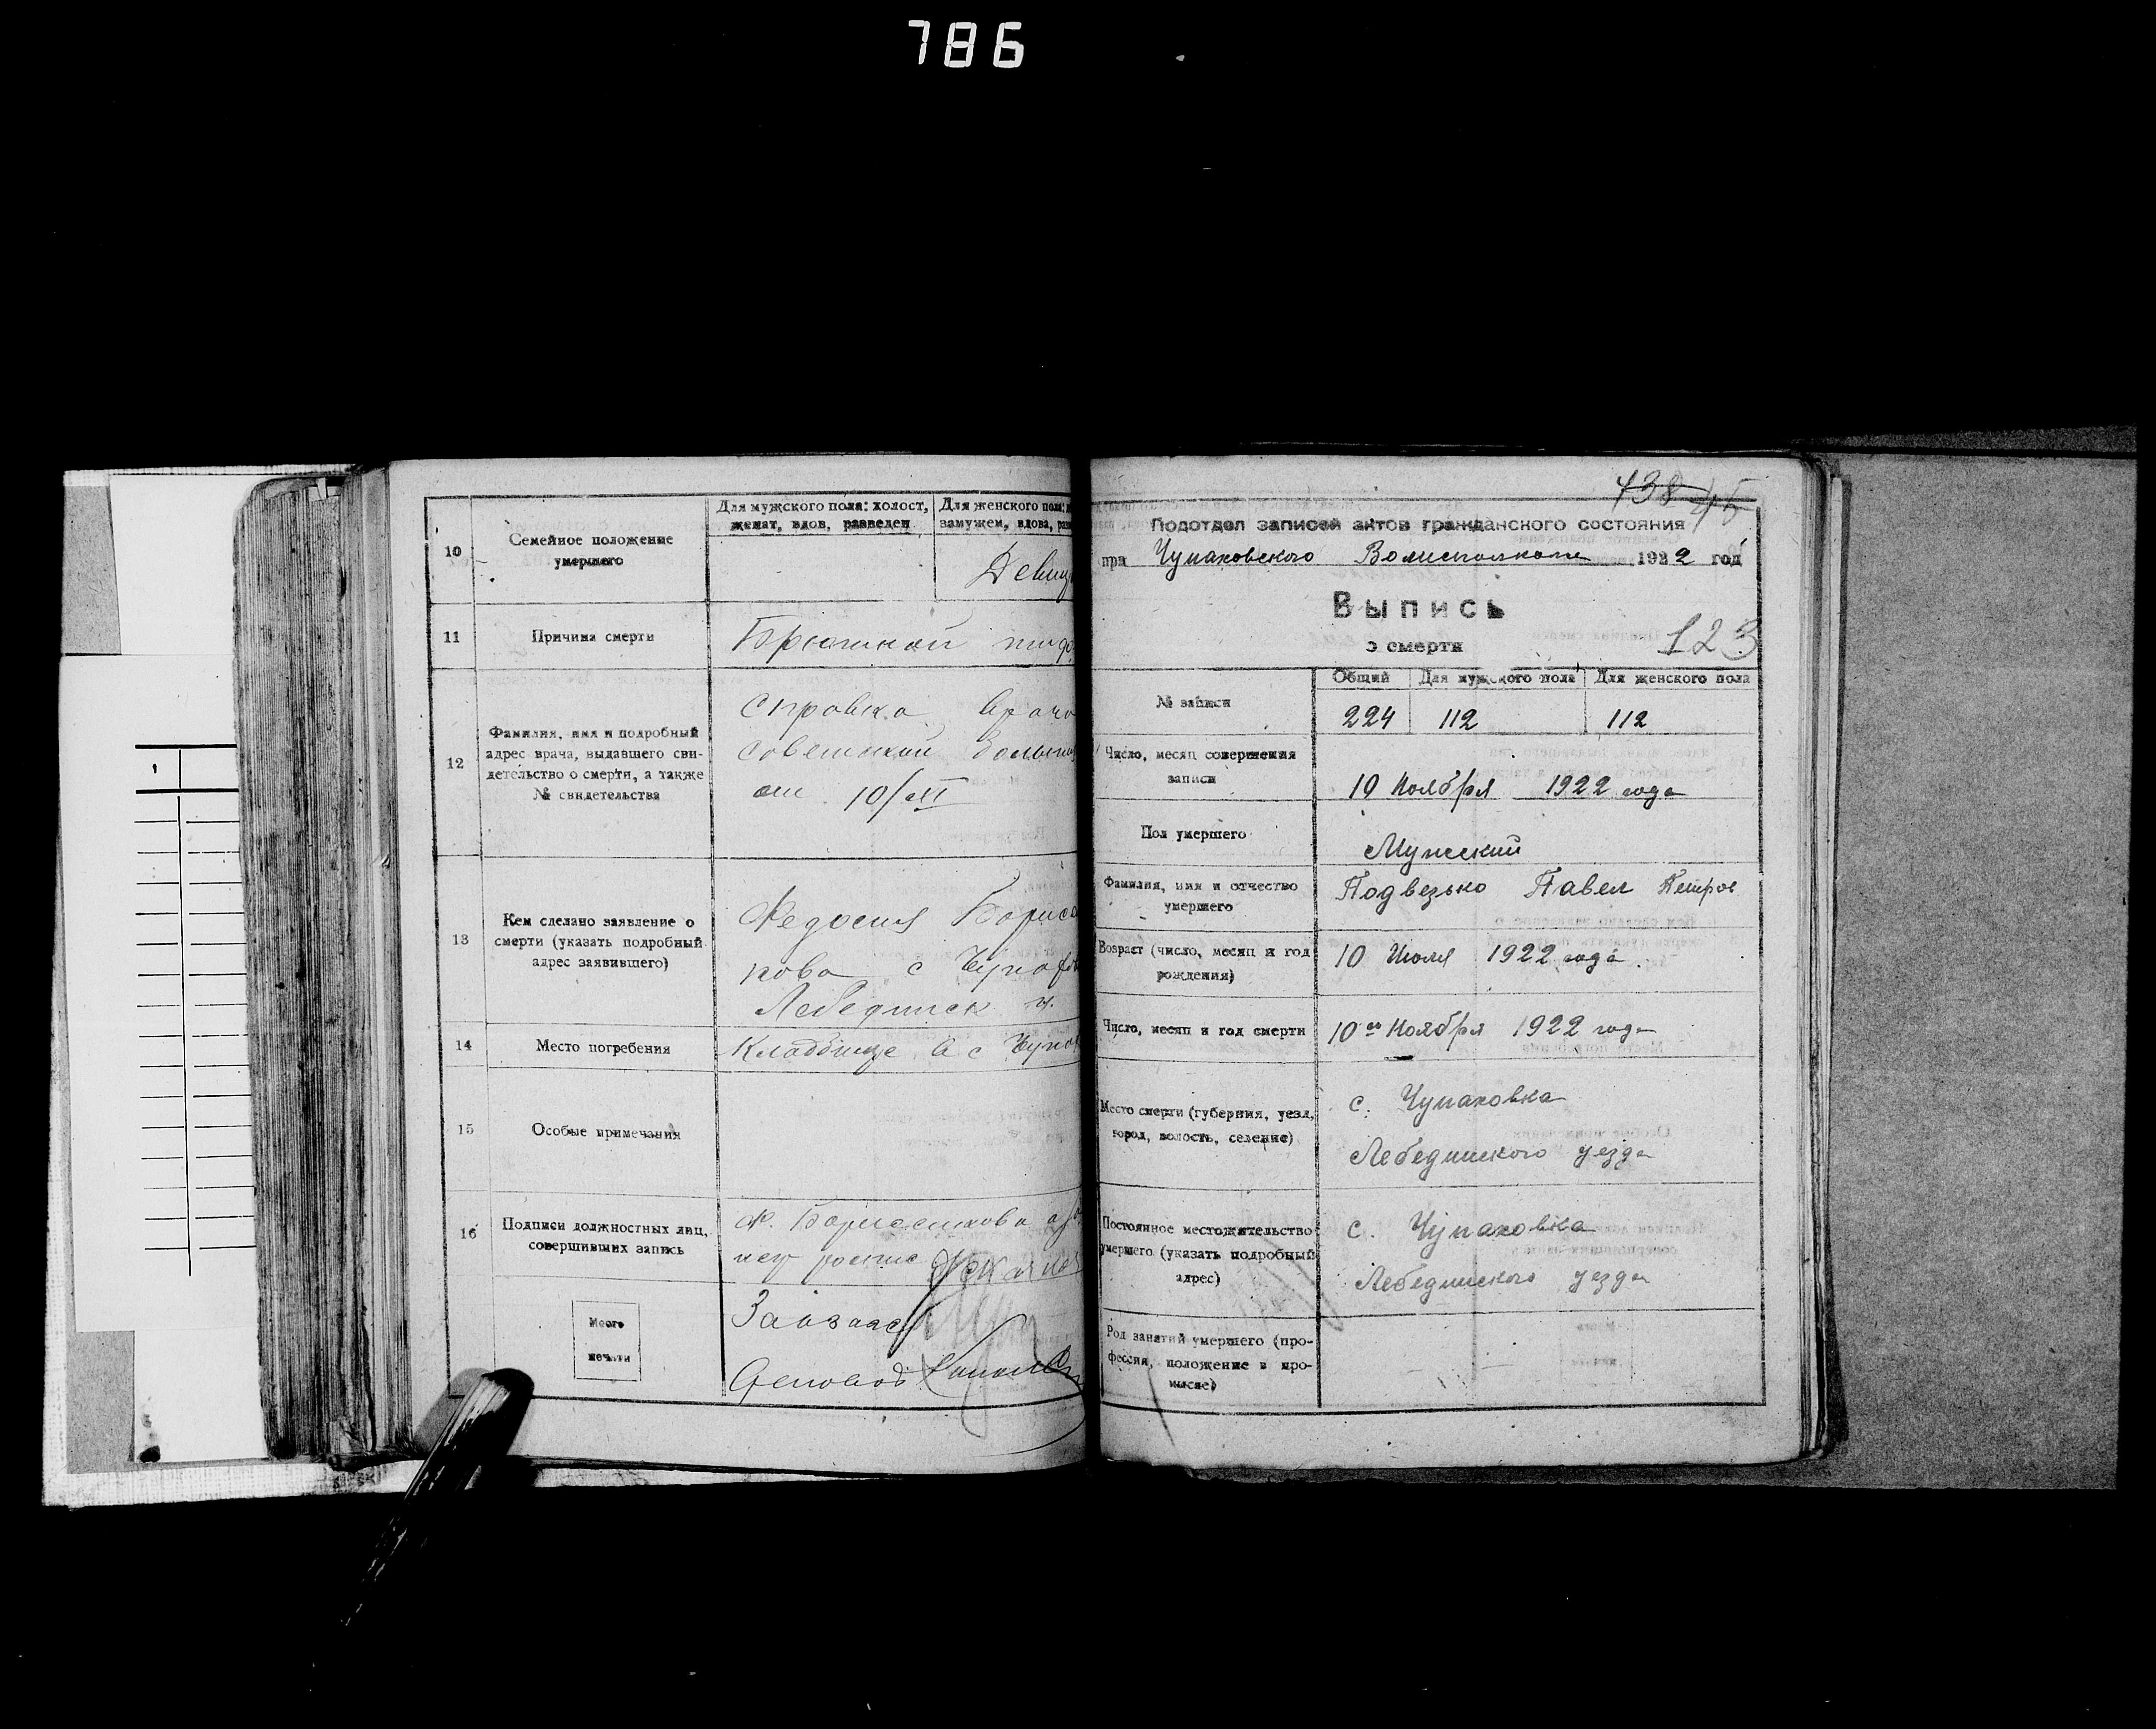 786
10
Семейное положение
умершего
Для мужского пола: холост,
женат, вдов, разведен
Для женского пола:
замужем, вдова, раз
Девиц
11
Причина смерти
Брюшной тиф
12
Фамилия, имя и подробный
адрес врача, выдавшего сви-
детельство о смерти, а также
№ свидетельства
Справка Врача
Советской больниц
от 10/XI
13
Кем сделано заявление о
смерти (указать подробный
адрес заявившего)
Федосия Борисе
кова с Чупахов
Лебединск у.
14
Место погребения
Кладбище в с Чупах
15
Особые примечания
16
Подписи должностных лиц,
совершивших запись
Ф. Борисенкова
Место
печати
Завзапс
Деловод
438 45
Подотдел записей актов гражданского состояния
при Чупаховского Волисполкома 1922 год
Выпись
о смерти
123
№ записи
Общий
Для мужского пола
Для женского пола
224
112
112
Число, месяц совершения
записи
10 Ноября 1922 года
Пол умершего
Мужский
Фамилия, имя и отчество
умершего
Подвезько Павел Петров
Возраст (число, месяц и год
рождения)
10 Июля 1922 года.
Число, месяц и год смерти
10го Ноября 1922 года
Место смерти (губерния, уезд,
город, волость, селение)
с. Чупаховка
Лебединского уезда
Постоянное местожительство
умершего (указать подробный
адрес)
с. Чупаховка
Лебединского уезда
Род занятий умершего (про-
фессия, положение в про-
мысле)
1